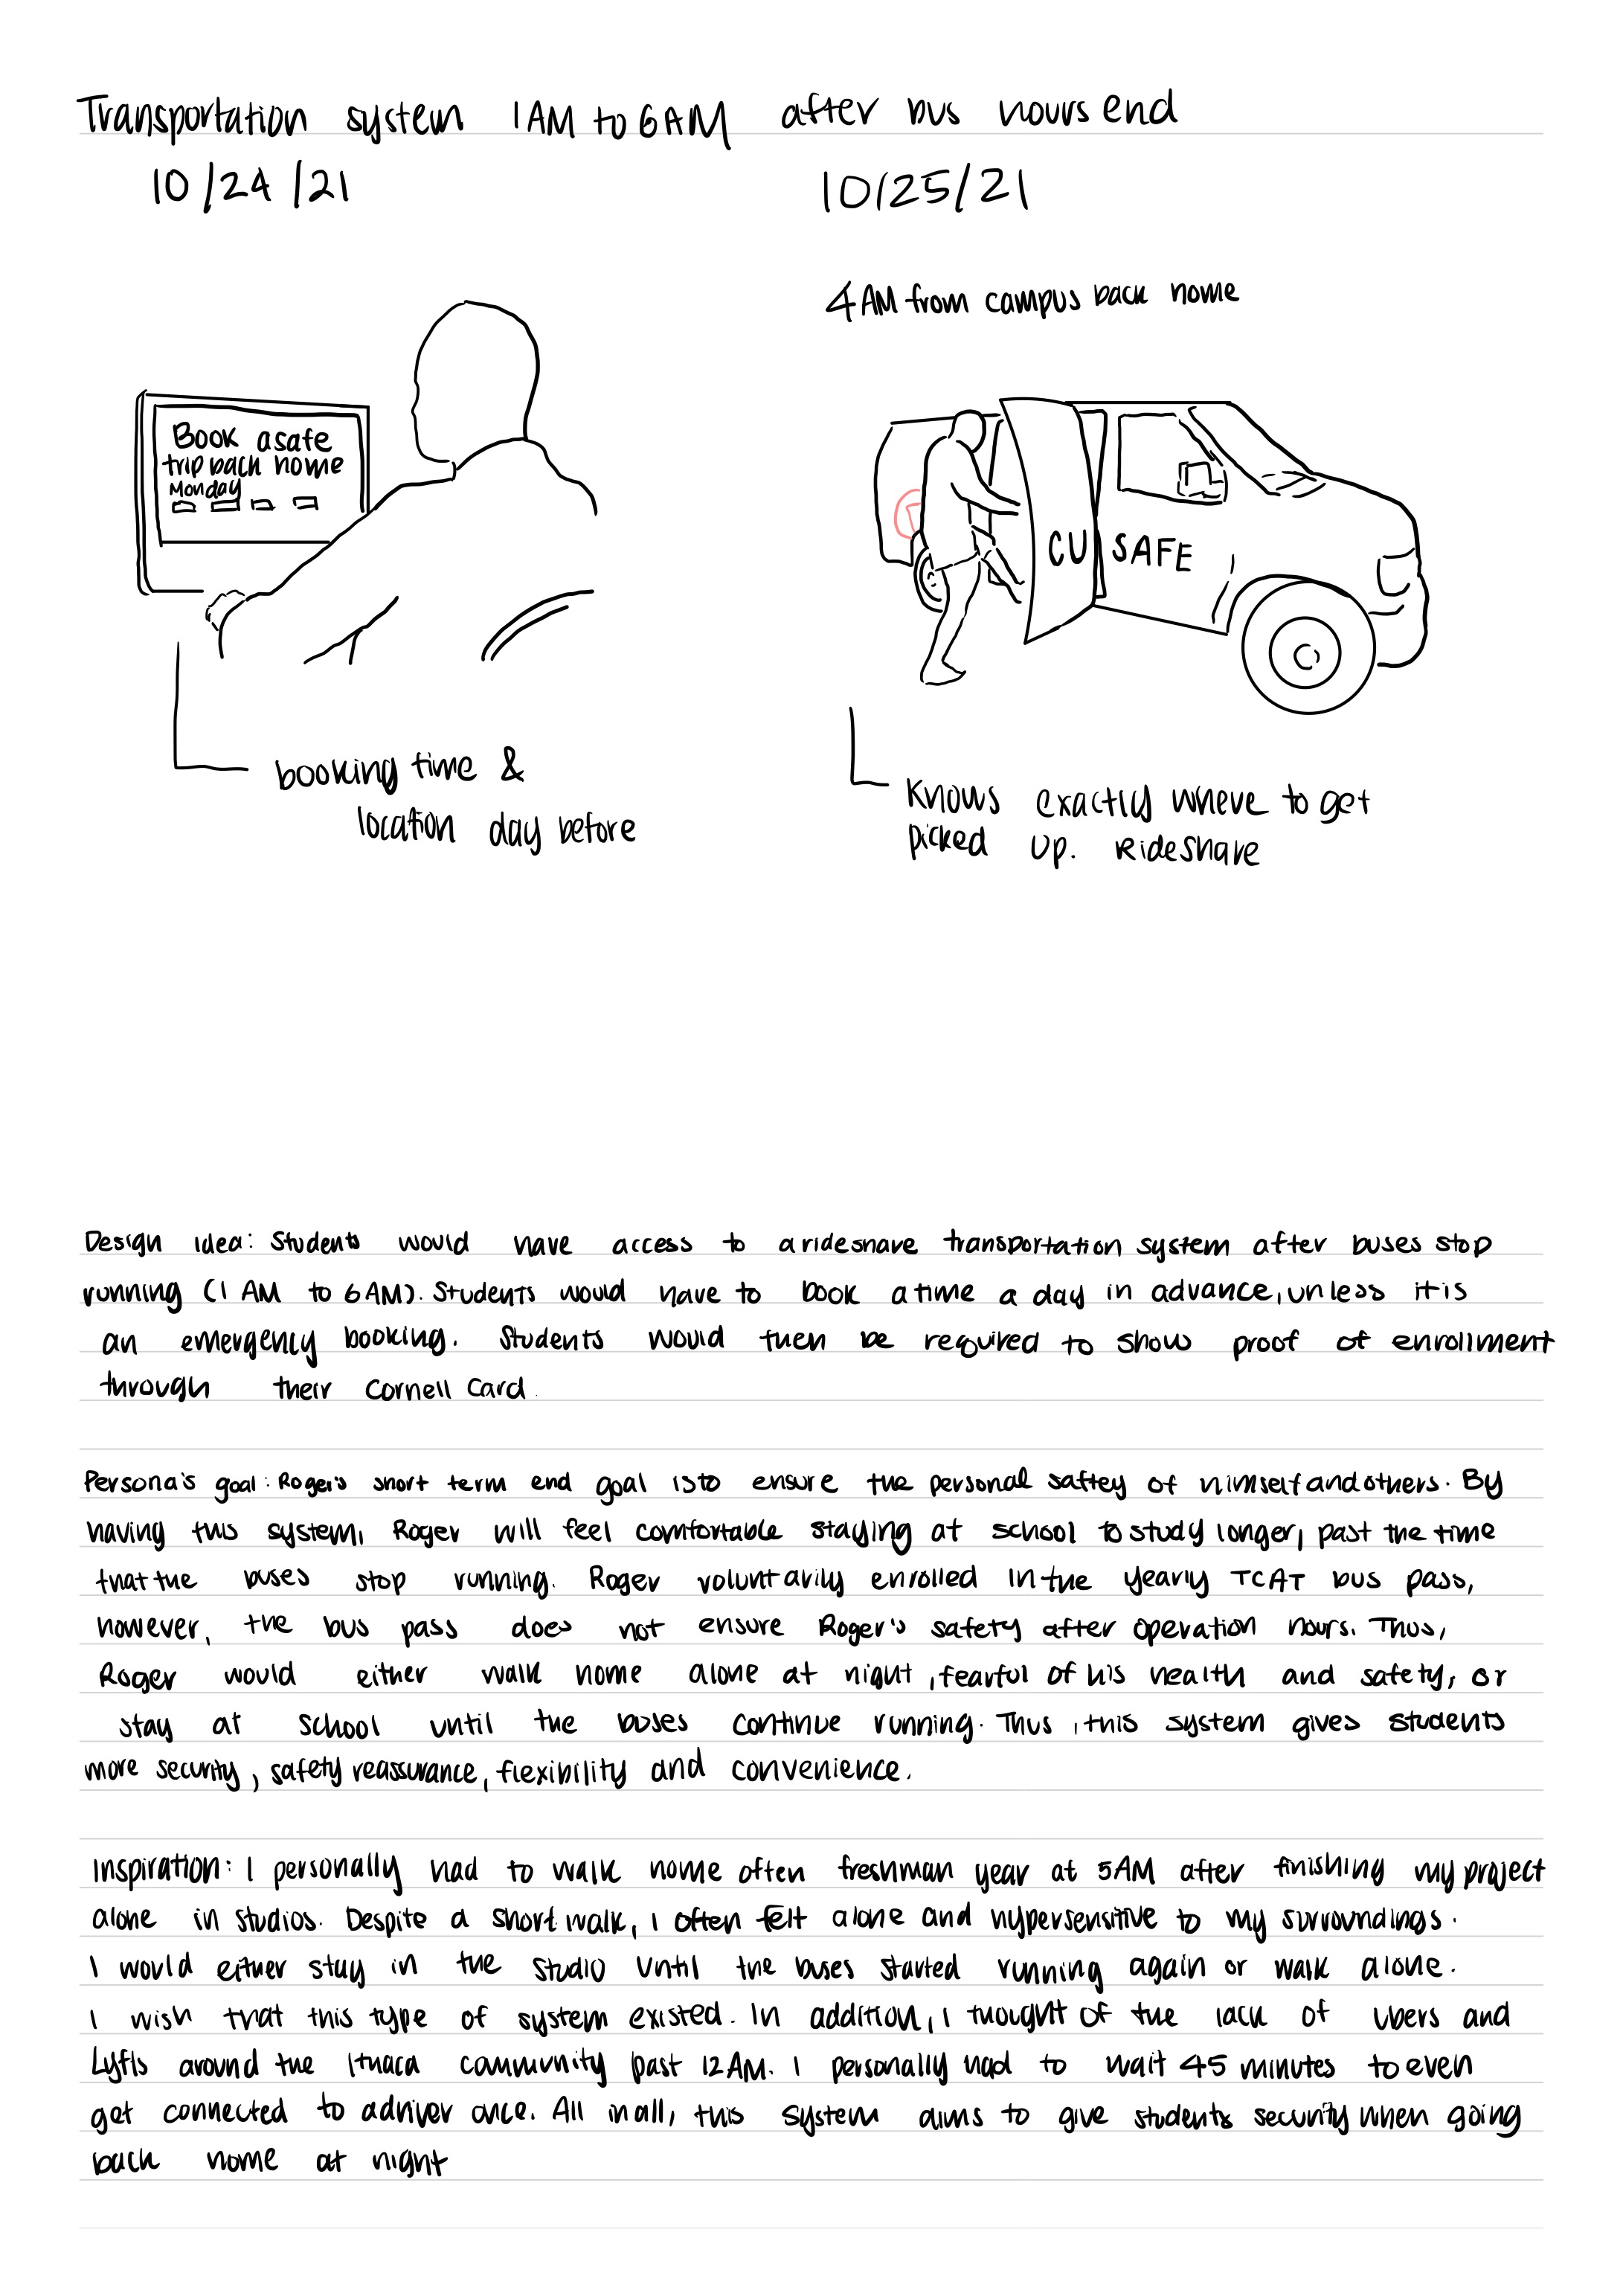 Transportation system 1AM to 6AM after bus hours end
10/24/21
10/25/21
4AM from campus back home
Book a safe
trip back home
Monday
CU SAFE
booking time &
location day before
Knows exactly where to get
picked up. Rideshare
Design idea: Students would have access to a rideshare transportation system after buses stop
running (1 AM to 6AM). Students would have to book a time a day in advance, unless it is
an emergency booking. Students would then be required to show proof of enrollment
through their Cornell Card.
Persona's goal: Roger's short term end goal is to ensure the personal saftey of himself and others. By
having this system, Roger will feel comfortable staying at school to study longer, past the time
that the buses stop running. Roger voluntarily enrolled in the yearly TCAT bus pass,
however, the bus pass does not ensure Roger's safety after operation hours. Thus,
Roger would either walk home alone at night, fearful of his health and safety, or
stay at school until the buses continue running. Thus, this system gives students
more security, safety reassurance, flexibility and convenience.
Inspiration: I personally had to walk home often freshman year at 5AM after finishing my project
alone in studios. Despite a short walk, I often felt alone and hypersensitive to my surroundings.
I would either stay in the studio until the buses started running again or walk alone.
I wish that this type of system existed. In addition, I thought of the lack of Ubers and
Lyfts around the Ithaca community past 12AM. I personally had to wait 45 minutes to even
get connected to a driver once. All in all, this system aims to give students security when going
back home at night